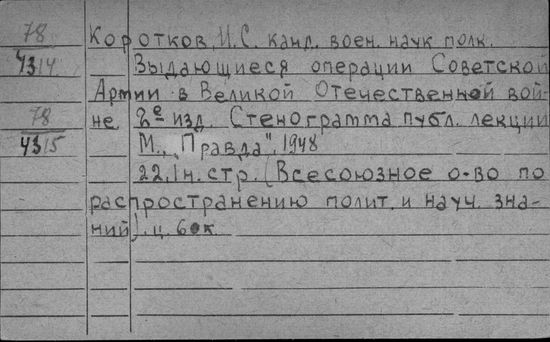 78 Коротков, И.С. канд. воен. наук полк.
4314 Выдающиеся операции Советской
Армии в Великой Отечественной вой-
78 не 2е изд. Стенограмма публ. лекции
4315 М., "Правда", 1948
22, 1н. стр. (Всесоюзное о-во по
распространению полит. и науч. зна-
ний). ц. 60к.